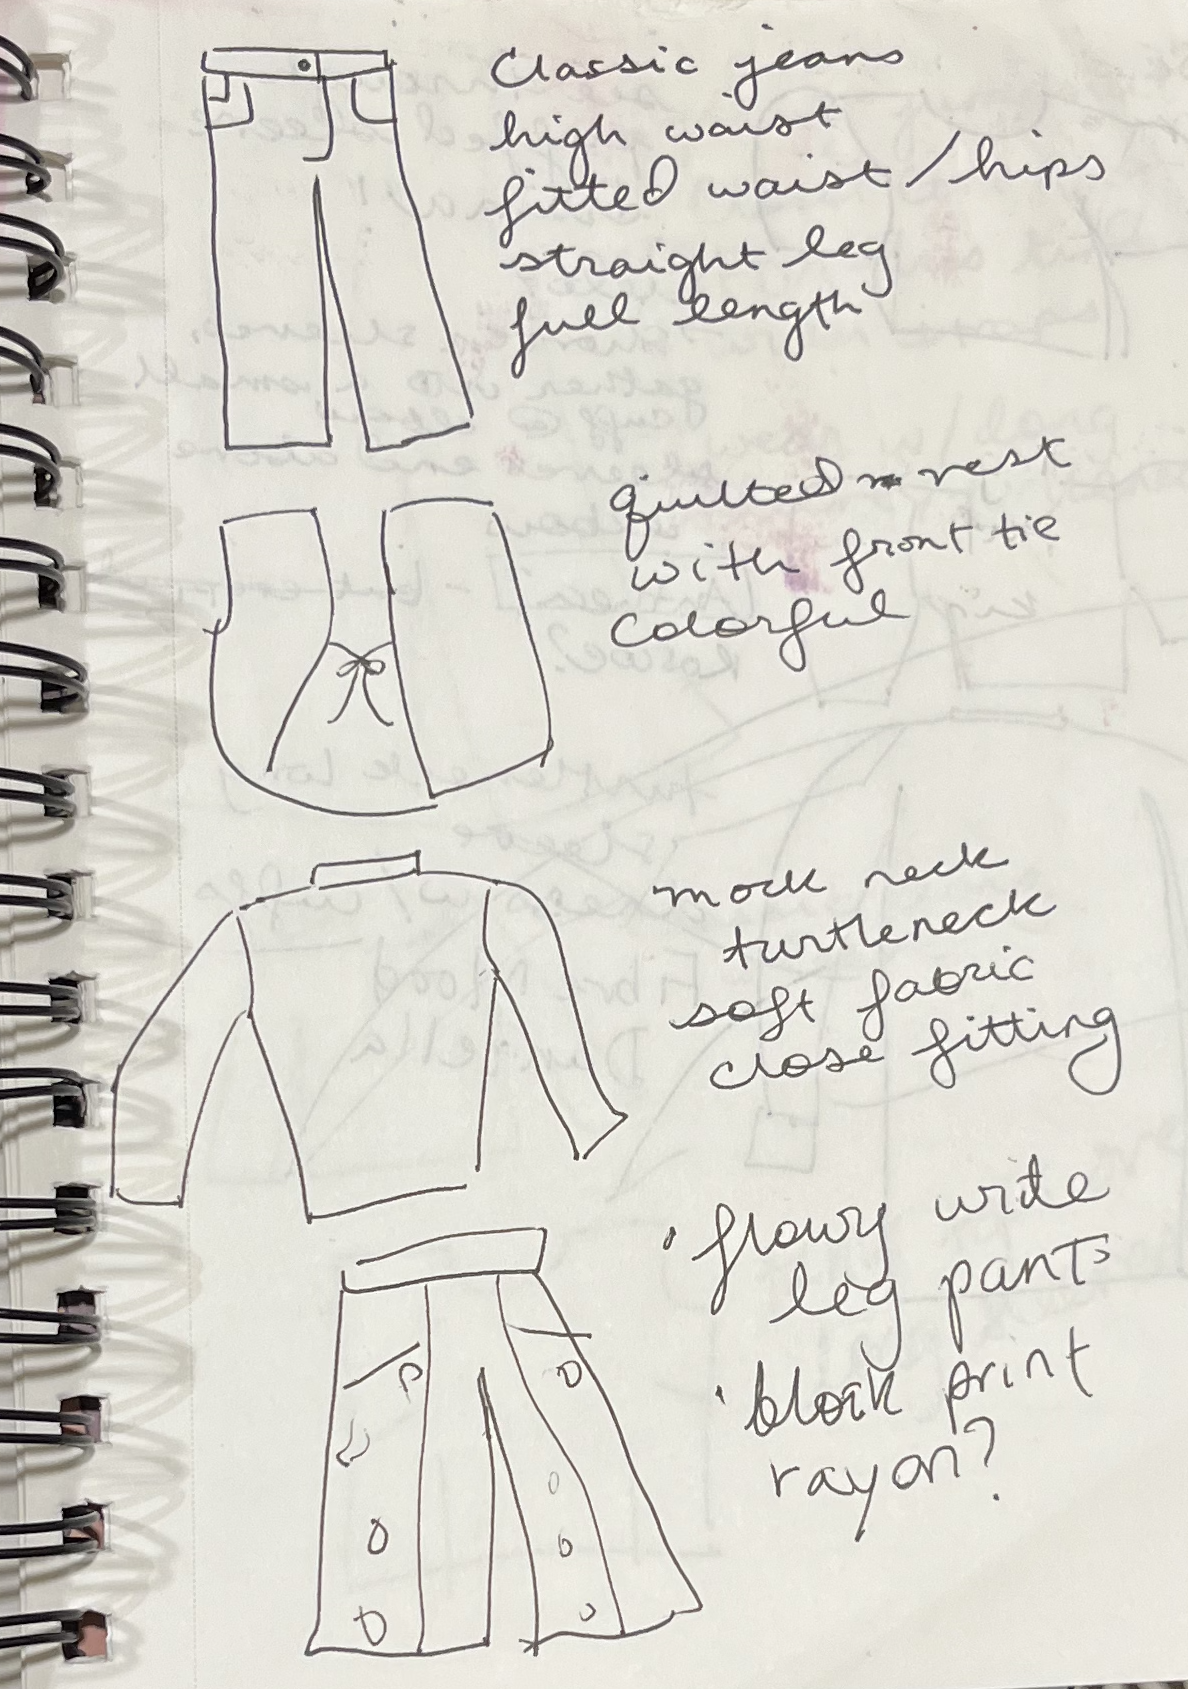 Classic jeans
high waist
fitted waist / hips
straight leg
full length
quilted vest
with front tie
Colorful
mock neck
turtleneck
soft fabric
close fitting
• flowy wide
leg pants
• block print
rayon?